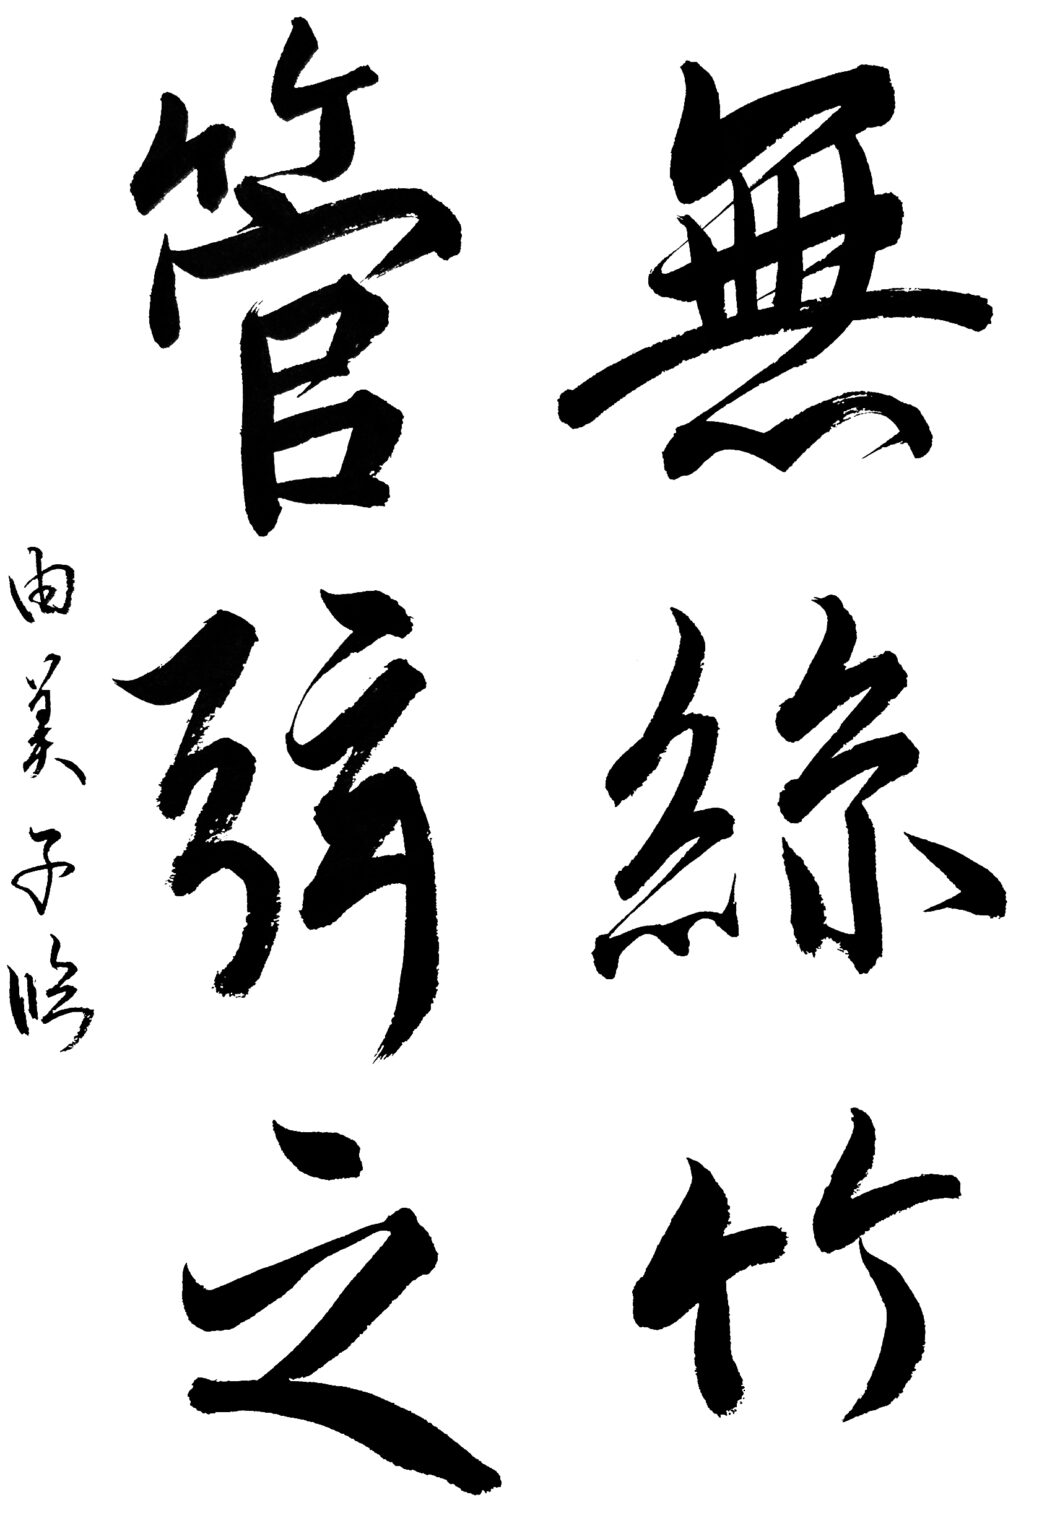 無絲竹
管弦之
由美子臨